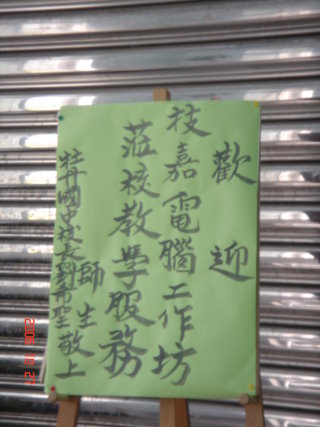 歡迎
技嘉電腦工作坊
蒞校教學服務
師生
牡丹國中校長劉希聖敬上